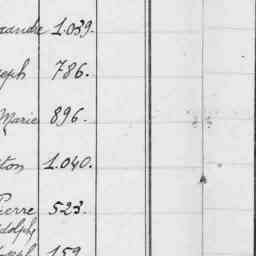 1.039.
eph 786.
Marie 896.
ton 1.040.
Pierre 523.
dolphe
159